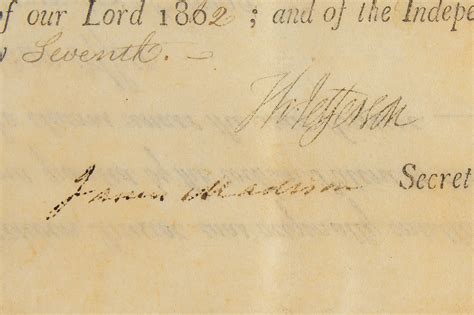 of our Lord 1802; and of the Indepe
Seventh.
Th: Jefferson
James Madison Secret